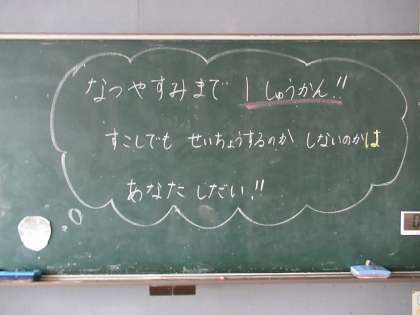 なつやすみまで 1しゅうかん!!
すこしでも せいちょうするのか しないのかは
あなた しだい!!